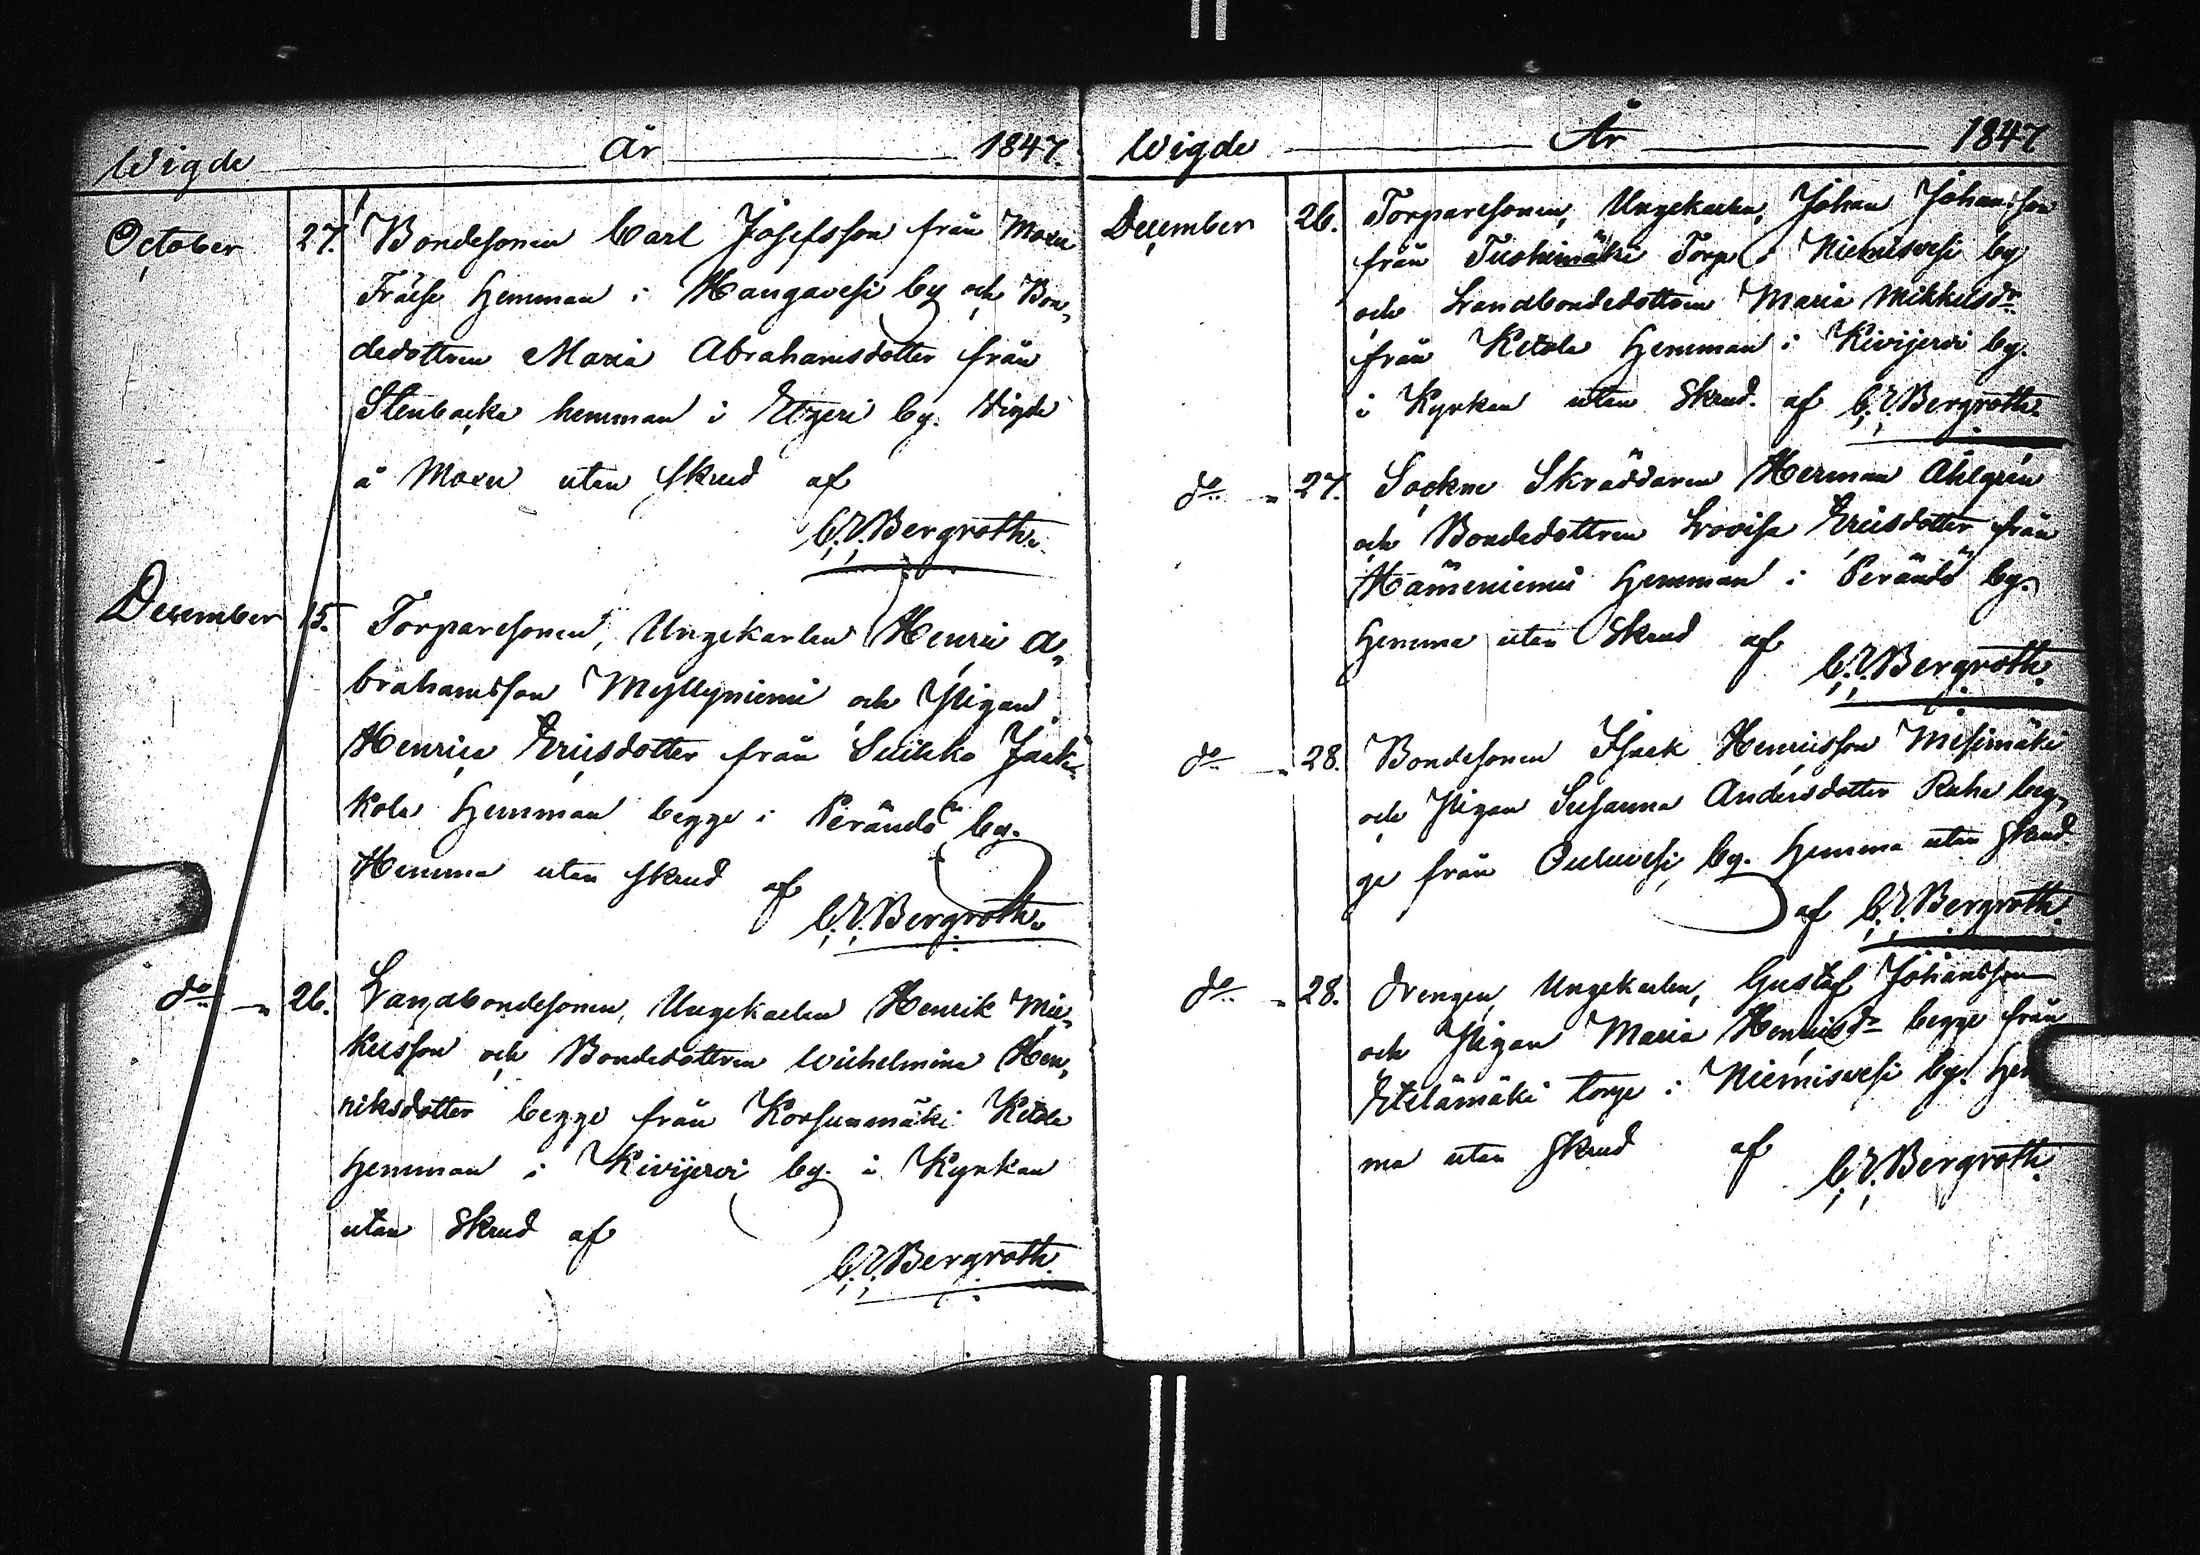 Wigde År 1847.
October 27. Bondesonen Carl Josefsson från Moxu
Frälse Hemman i Hangavesi by och Bon„
dedottren Maria Abrahamsdotter från
Stenbacka hemman i Etzeri by. Wigde
å Moxu utan skrud af
C. E. Bergroth.
December 15. Torparesonen, Ungekarlen Henric A„
brahamsson Myllyniemi och Pigan
Henrica Ericsdotter från Suikko Jaak„
kola Hemman begge i Perändö by.
Hemma utan skrud af
C. E. Bergroth.
do „ 26. Landbondesonen, Ungekarlen Henrik Mic„
kelsson och Bondedottren Wilhelmina Hen„
riksdotter begge från Korsunmäki Ketola
Hemman i Kivijervi by. i Kyrkan
utan Skrud af
C. E. Bergroth.
Wigde År 1847
December 26. Torparesonen, Ungekarlen, Johan Johansson
från Tuohimäki Torp i Niemisvesi by
och Landbondedottren Maria Mikkelsdr
från Ketola Hemman i Kivijervi by.
i Kyrkan utan Skrud. af C. E. Bergroth.
do „ 27. Sockne Skräddaren Herman Ahlgrén
och Bondedottren Lovisa Ericsdotter från
Hämeniemi Hemman i Perändö by.
Hemma utan Skrud af
C. E. Bergroth.
do „ 28. Bondesonen Isack Henricsson Mesimäki
och Pigan Susanna Andersdotter Ruha beg„
ge från Ouluvesi by. Hemma utan Skrud
af C. E. Bergroth.
do „ 28. Drengen, Ungekarlen, Gustaf Johansson
och Pigan Maria Henricsdr begge från
Etelämäki torp i Niemisvesi by. Hem
ma utan Skrud af
C. E. Bergroth.